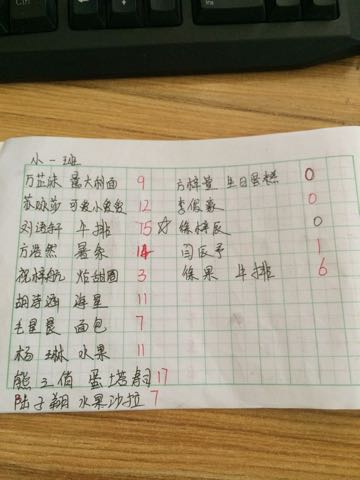 小一班
方芷妹 意大利面 9
苏 莎 可爱小爱爱 12
刘语轩 牛排 75 ☆
方浩然 薯条 14
祝梓航 炸甜圈 3
胡诗涵 海星 11
毛星晨 面包 7
杨琳 水果 11
熊三俏 蛋塔 17
陆子翔 水果沙拉 7
方梓萱 生日蛋糕 0
李俊豪 0
徐梓辰 0
闫辰予 1
徐果 牛排 6
Ctrl
Alt